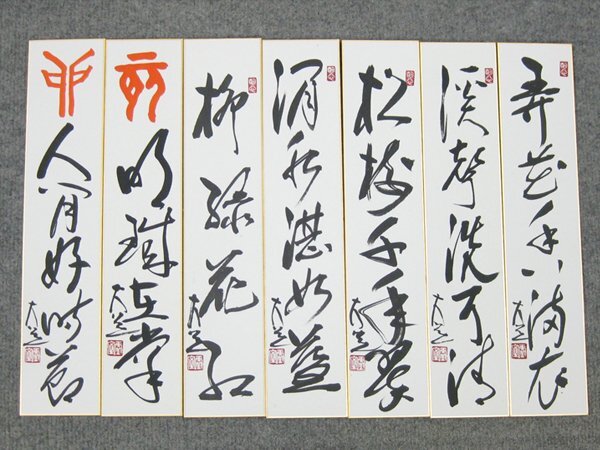 弄花香満衣
溪聲洗耳清
松樹千年翠
澗水湛如藍
柳緑花紅
亥
明珠在掌
卯
人間好時節